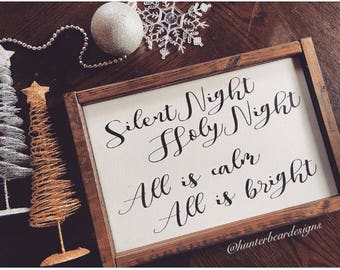 Silent Night
Holy Night
All is calm
All is bright
@hunterbeardesigns